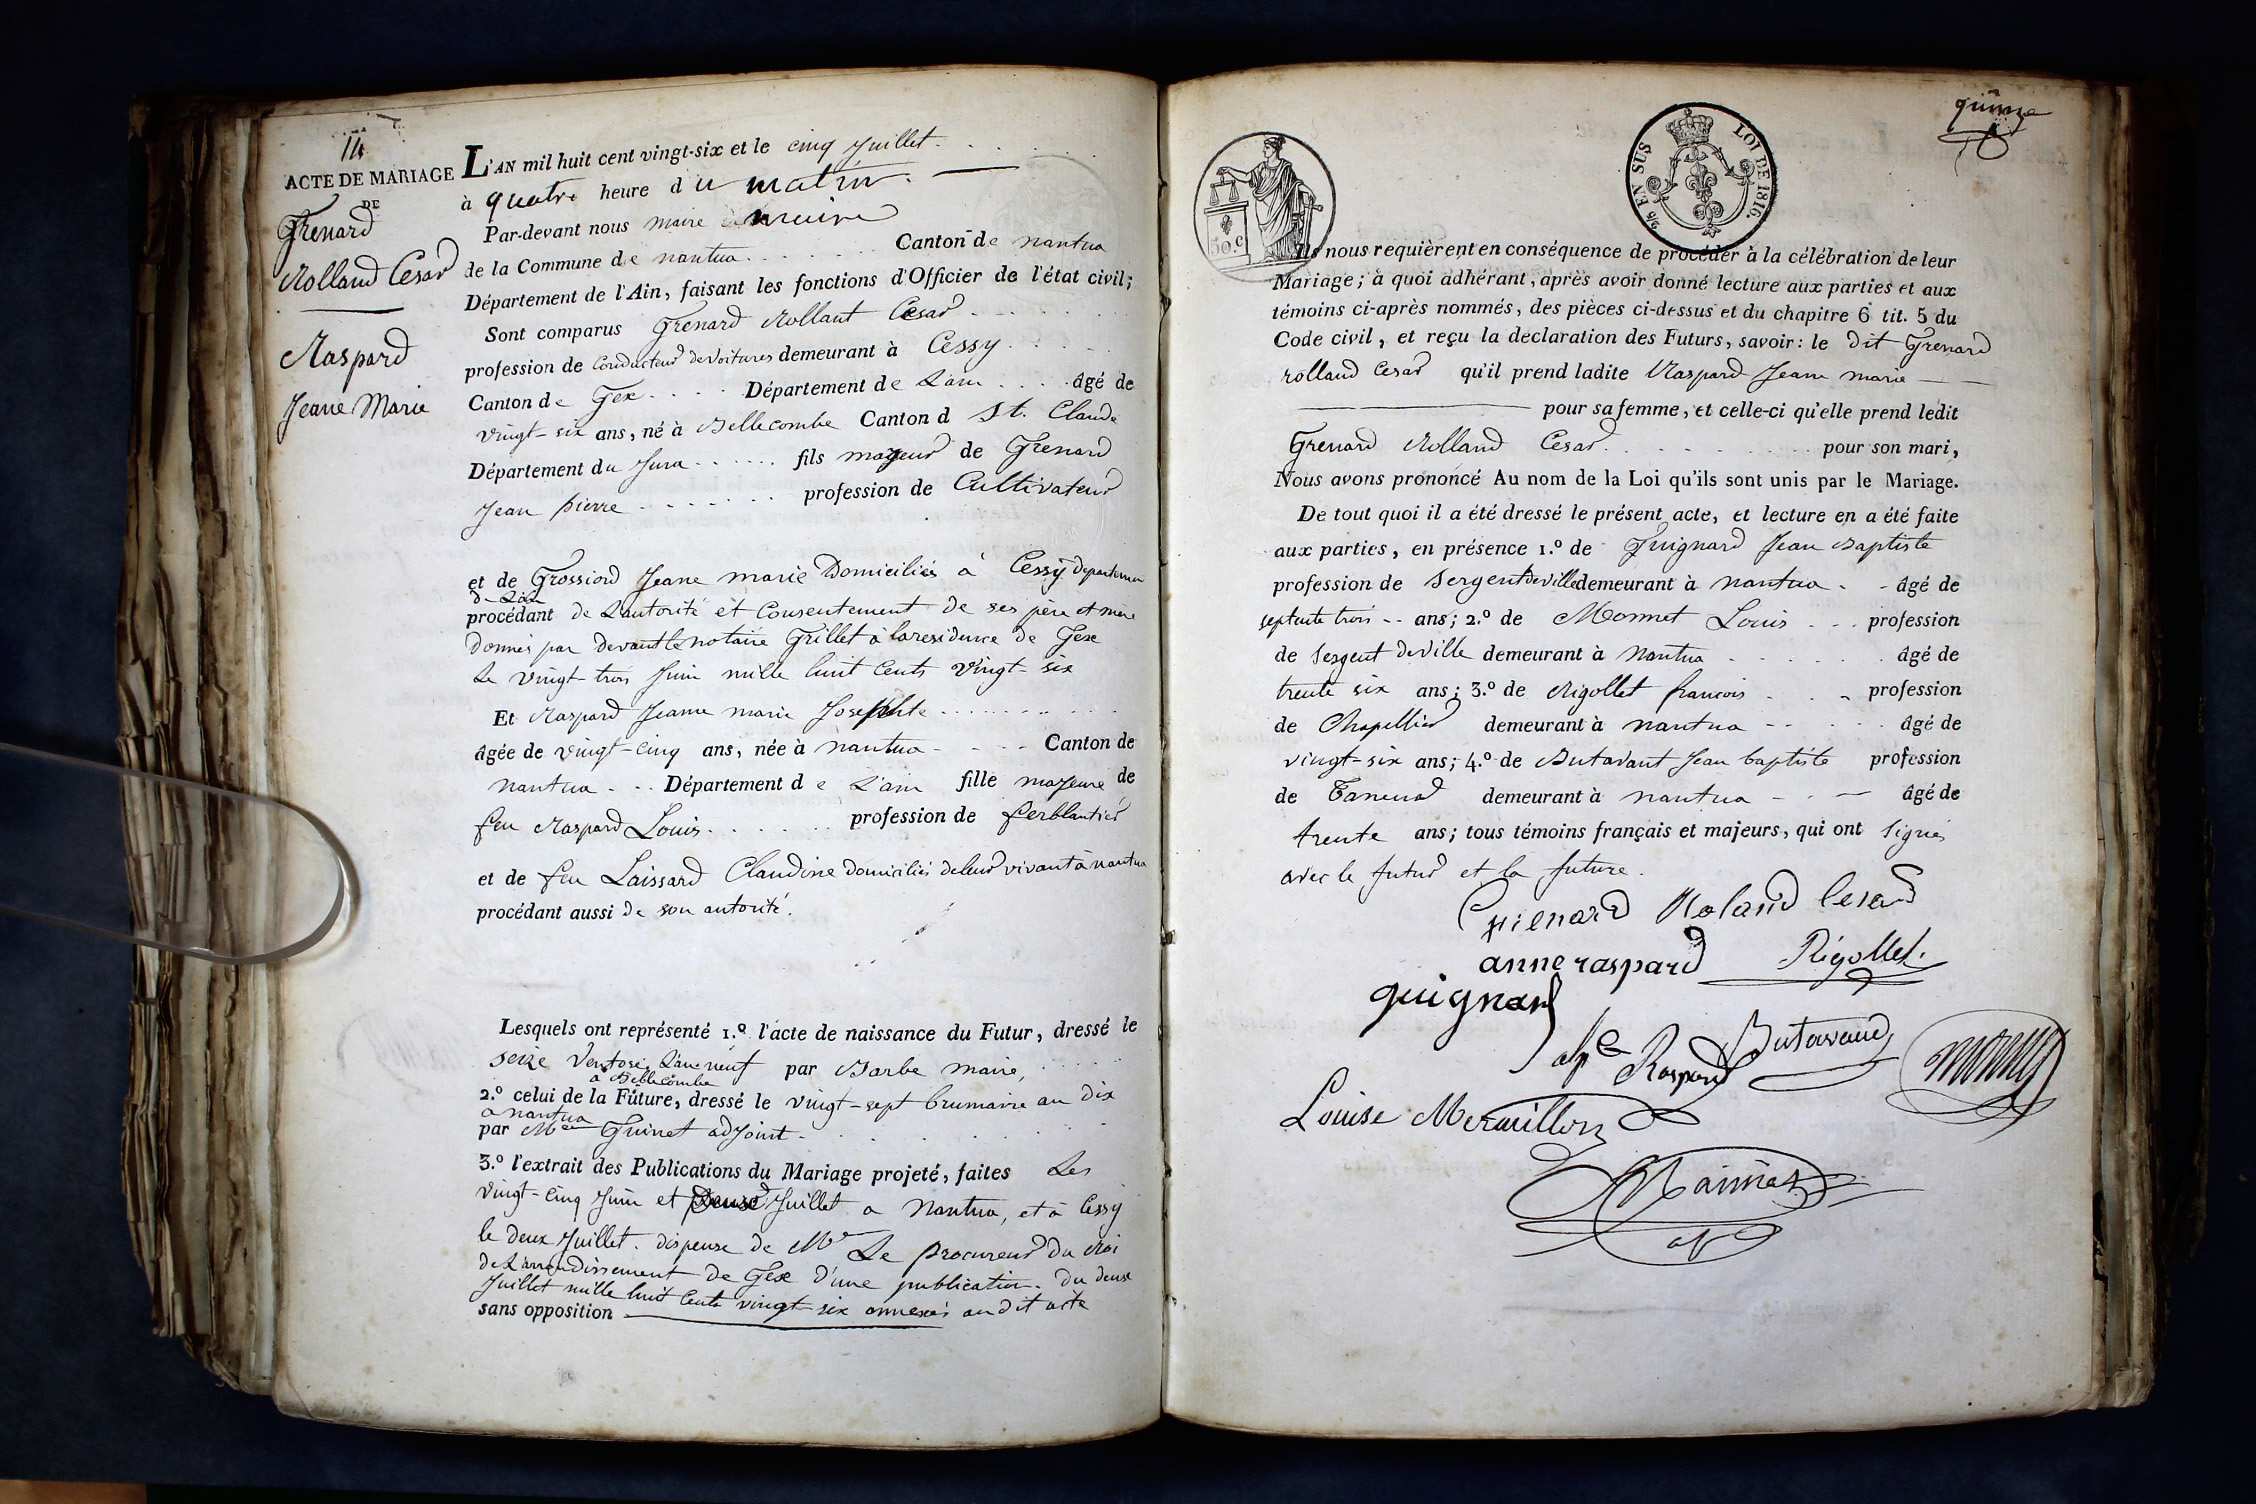 14
ACTE DE MARIAGE
DE
Grenard
Rolland Cesar
Raspard
Jeane Marie
L'AN mil huit cent vingt-six et le cinq Juillet
à quatre heure du matin
Par-devant nous maire
de la Commune de nantua Canton de nantua
Département de l'Ain, faisant les fonctions d'Officier de l'état civil;
Sont comparus Grenard Rollant Cesar
profession de Conducteur de Voitures demeurant à Cessy
Canton de Gex Département de L'ain âgé de
vingt-six ans, né à Bellecombe Canton d St. Claude
Département du Jura fils majeur de Grenard
Jean pierre profession de Cultivateur
et de Grossiord Jeane marie Domiciliés à Cessy departemen
de L'ain
procédant de L'autorité et Consentement de ses père et mere
donnés par devant le notaire Grillet à la residence de Gex
Le vingt-trois Juin mille huit Cents vingt-six
Et Raspard Jeanne marie Josephte
âgée de vingt-cinq ans, née à nantua Canton de
nantua Département de L'ain fille majeure de
feu Raspard Louis profession de ferblantier
et de feu Laissard Claudine domiciliés de leur vivant à nantua
procédant aussi de son autorité.
Lesquels ont représenté 1.º l'acte de naissance du Futur, dressé le
seize Ventose L'an neuf par Barbe maire,
a Bellecombe
2.º celui de la Future, dressé le vingt-sept brumaire an dix
a nantua
par Guinet adjoint
3.º l'extrait des Publications du Mariage projeté, faites Les
vingt-cinq Juin et Deux Juillet a Nantua, et à Cessy
le deux Juillet. dispense de Mr Le Procureur du Roi
de L'arrondissement de Gex d'une publication. Du deux
Juillet mille huit Cents vingt-six annexés au dit acte
sans opposition
quinze
50.C
LOI DE 1816.
EN SUS
Ils nous requièrent en conséquence de procéder à la célébration de leur
Mariage; à quoi adhérant, après avoir donné lecture aux parties et aux
témoins ci-après nommés, des pièces ci-dessus et du chapitre 6 tit. 5 du
Code civil, et reçu la déclaration des Futurs, savoir: le dit Grenard
rolland Cesar qu'il prend ladite Raspard Jeane marie
pour sa femme, et celle-ci qu'elle prend ledit
Grenard Rolland Cesar pour son mari,
Nous avons prononcé Au nom de la Loi qu'ils sont unis par le Mariage.
De tout quoi il a été dressé le présent acte, et lecture en a été faite
aux parties, en présence 1.º de Guignard Jean Baptiste
profession de Sergent de ville demeurant à nantua âgé de
septente trois ans; 2.º de Monnet Louis profession
de Sergent de Ville demeurant à Nantua âgé de
trente six ans; 3.º de Rigollet francois profession
de Chapellier demeurant à nantua âgé de
vingt-six ans; 4.º de Butavant Jean baptiste profession
de Taneur demeurant à nantua âgé de
trente ans; tous témoins français et majeurs, qui ont signés
avec le futur et la future.
Grenard Roland Cesar
anne raspard Rigollet
guignard
Raspard Butavand
Louise Mermillon